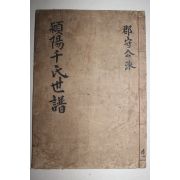 郡守公派
頴陽千氏世譜